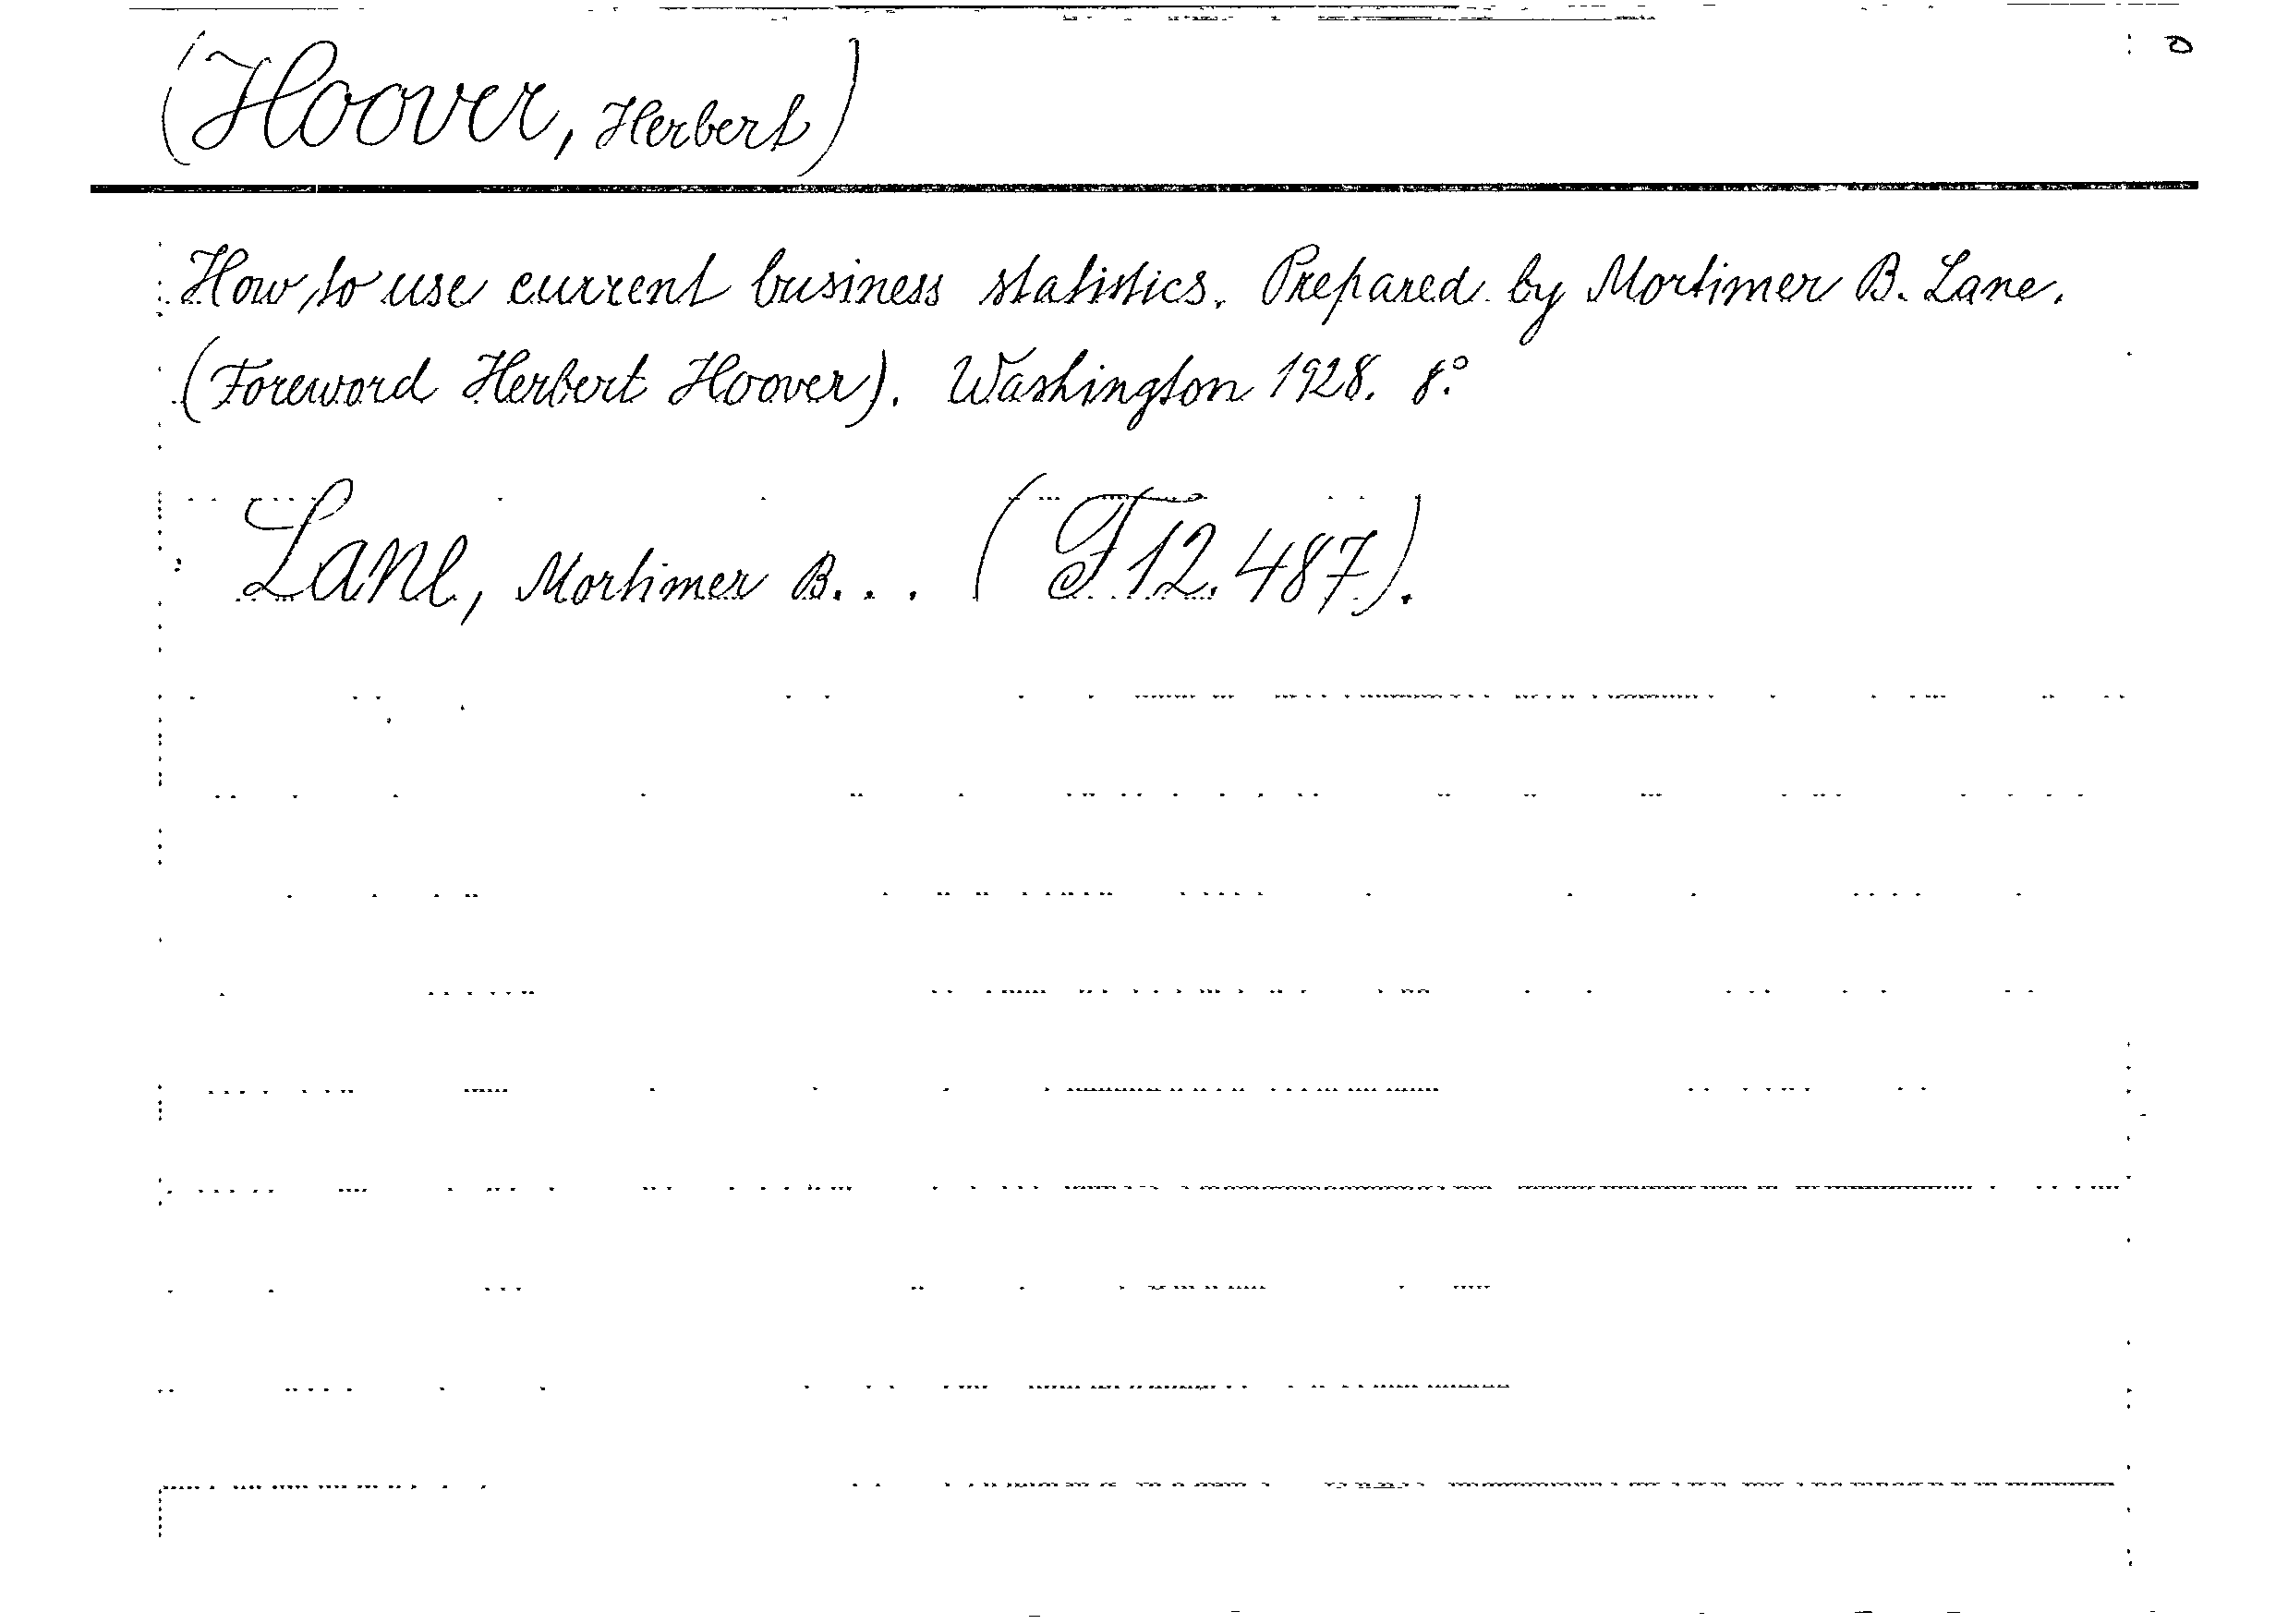 (Hoover, Herbert)
How to use current business statistics. Prepared by Mortimer B. Lane.
(Foreword Herbert Hoover). Washington 1928. 8°.
Lane, Mortimer B... (F12.487).